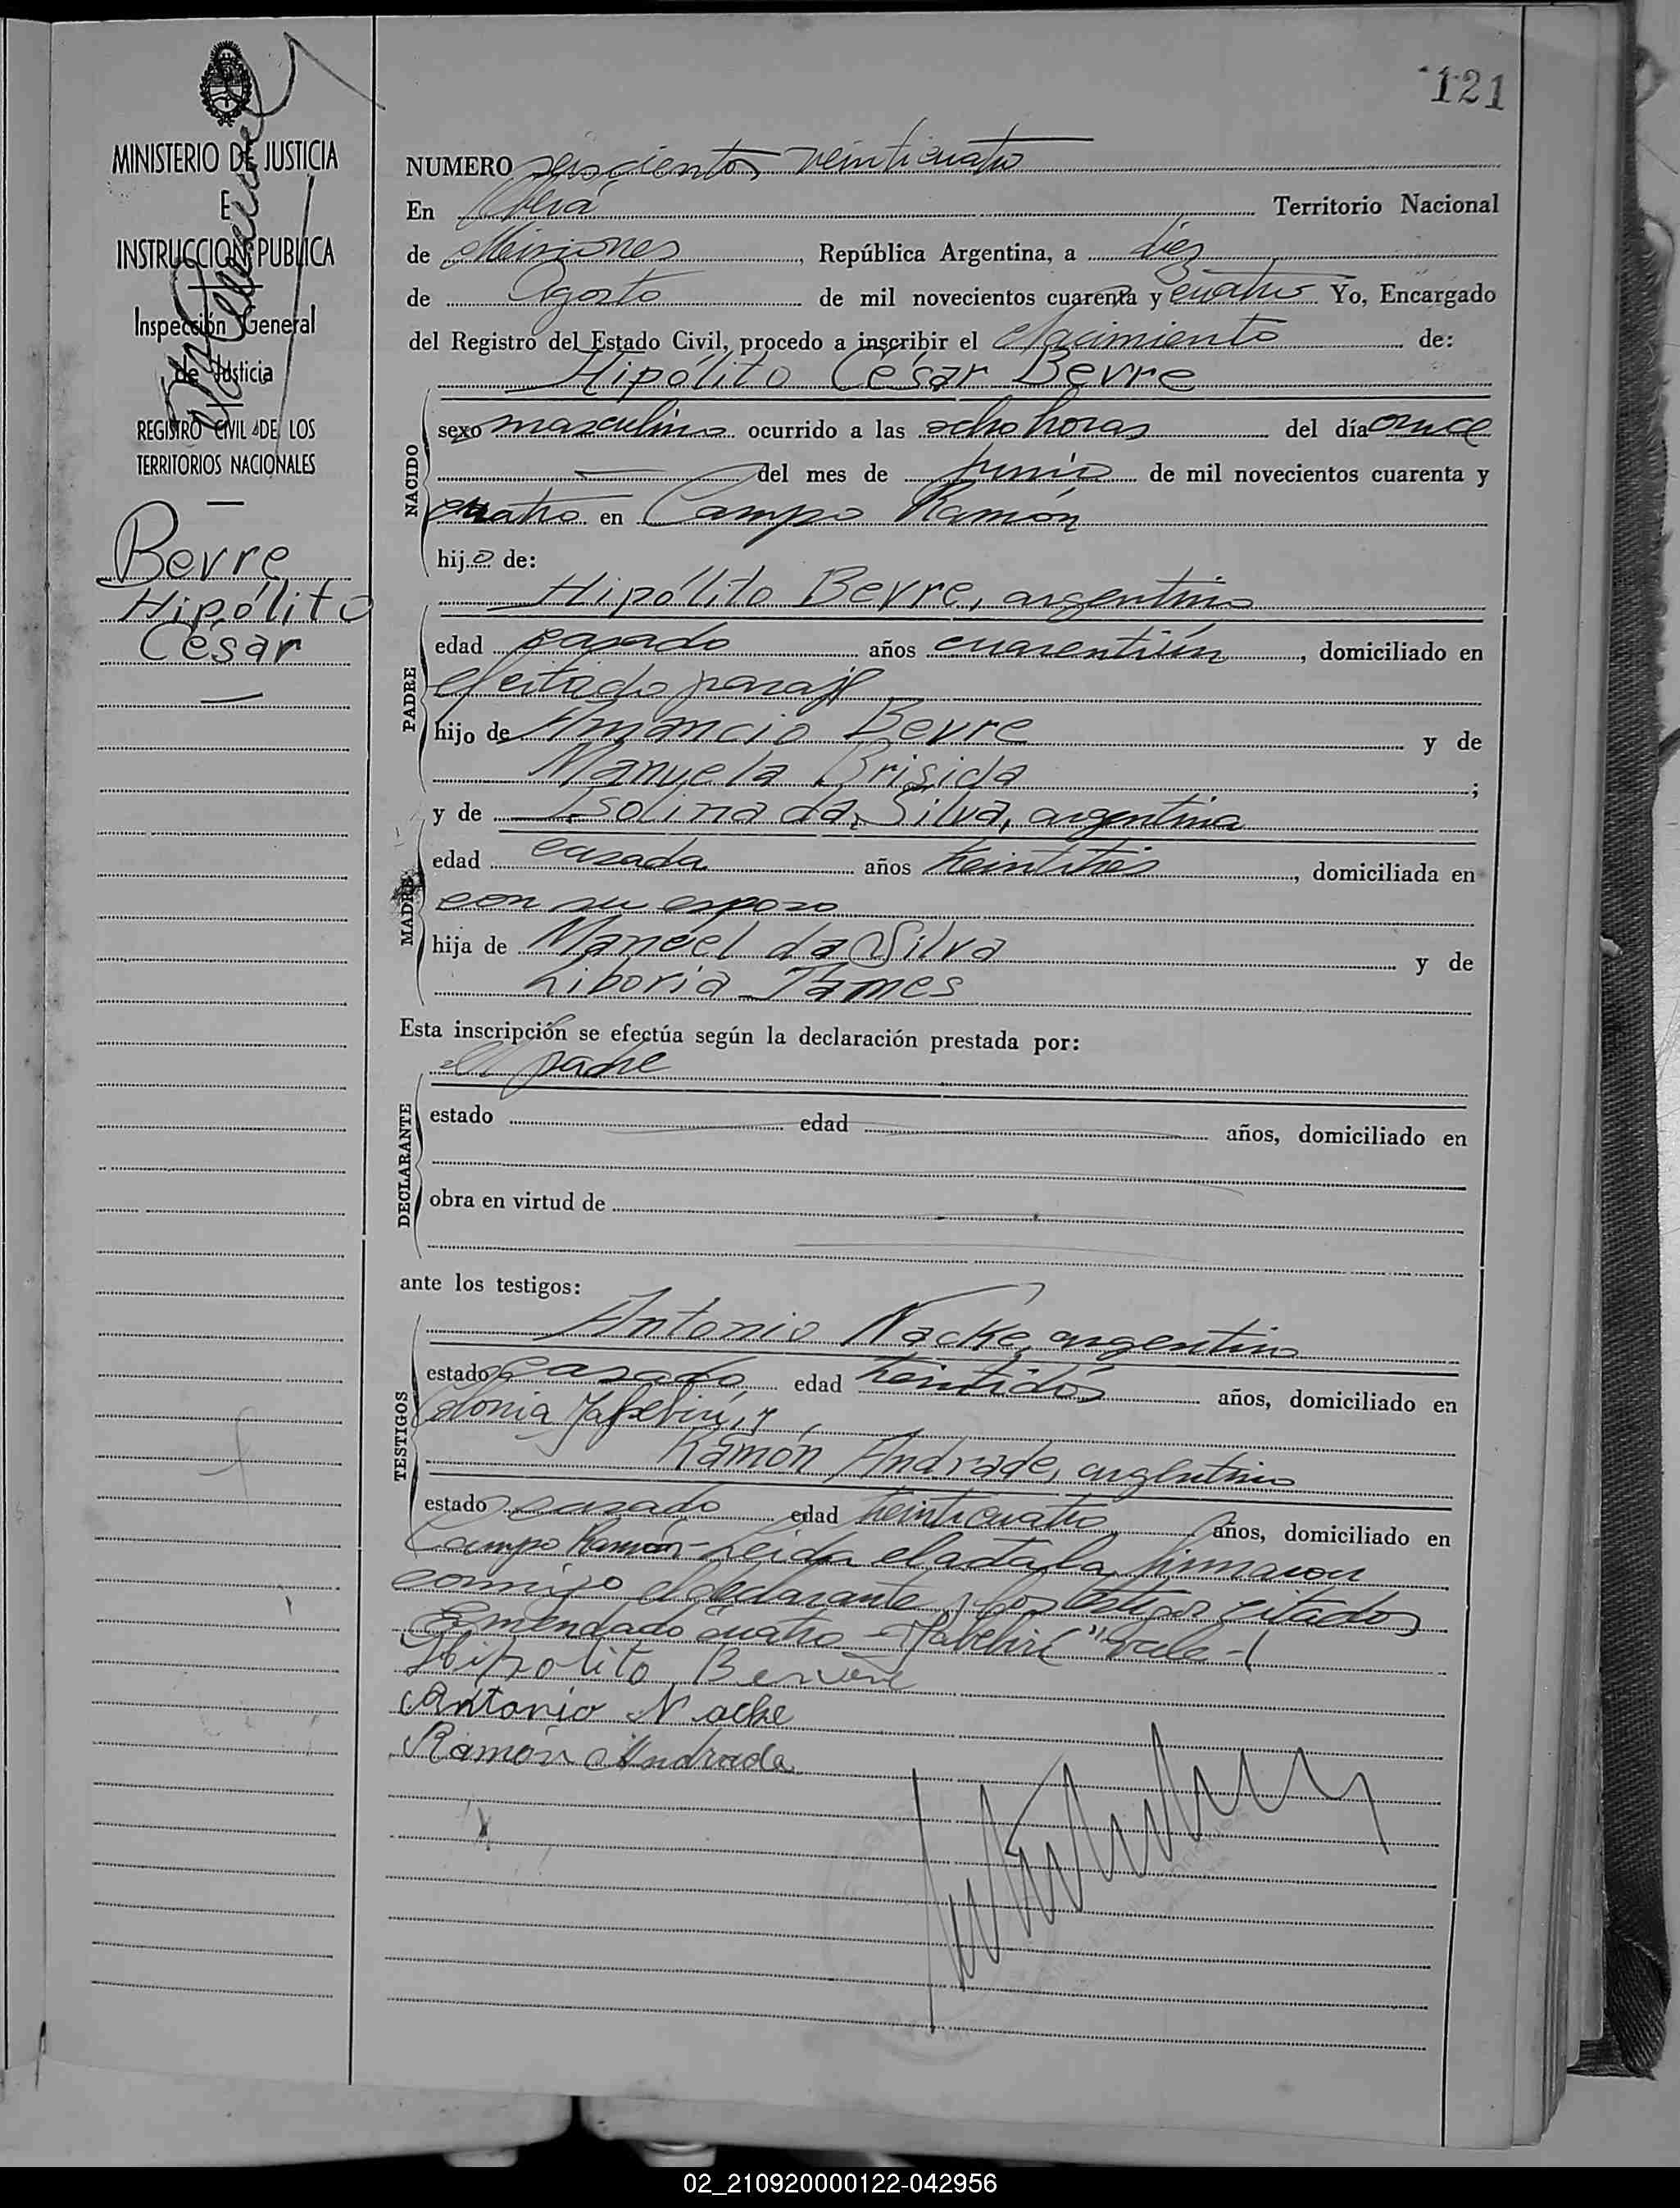 121
MINISTERIO DE JUSTICIA
E
INSTRUCCION PUBLICA
Inspección General
de Justicia
REGISTRO CIVIL DE LOS
TERRITORIOS NACIONALES
Bevre
Hipólito
César
NUMERO seiscientos veinticuatro
En Oberá Territorio Nacional
de Misiones, República Argentina, a diez
de Agosto de mil novecientos cuarenta y cuatro Yo, Encargado
del Registro del Estado Civil, procedo a inscribir el Nacimiento de:
Hipólito César Bevre
NACIDO
sexo masculino ocurrido a las ocho horas del día once
del mes de junio de mil novecientos cuarenta y
cuatro en Campo Ramón
hijo de:
Hipólito Bevre, argentino
PADRE
edad casado años cuarentiún, domiciliado en
el citado paraje
hijo de Amancio Bevre y de
Manuela Brisida;
y de Isolina da Silva, argentina
MADRE
edad casada años treintitrés, domiciliada en
con su esposo
hija de Manoel da Silva y de
Liboria Tames
Esta inscripción se efectúa según la declaración prestada por:
el padre
DECLARANTE
estado edad años, domiciliado en
obra en virtud de
ante los testigos:
Antonio Nacke, argentino
TESTIGOS
estado casado edad treintidós años, domiciliado en
Colonia Yabebirí, y
Ramón Andrade, argentino
estado casado edad treinticuatro años, domiciliado en
Campo Ramón - Leída el acta la firmaron
conmigo el declarante y los testigos citados
Enmendado cuatro - "Yabebirí" Vale -
Hipolito Bervere
Antonio Nacke
Ramón Andrada
02_210920000122-042956